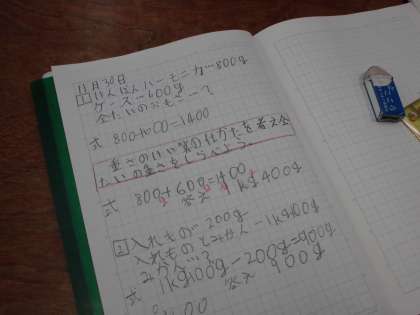 11月30日
1 けんばんハーモニカ…800g
ケース…600g
全たいのおもさ…?
式 800+600=1400
重さのけい算の仕方を考え全
たいの重さをしらべよう。
式 800+600=1400
答え 1kg400g
2 入れもの…200g
入れものとみかん…1kg100g
みかん…?
式 1kg100g-200g=900g
答え 900g